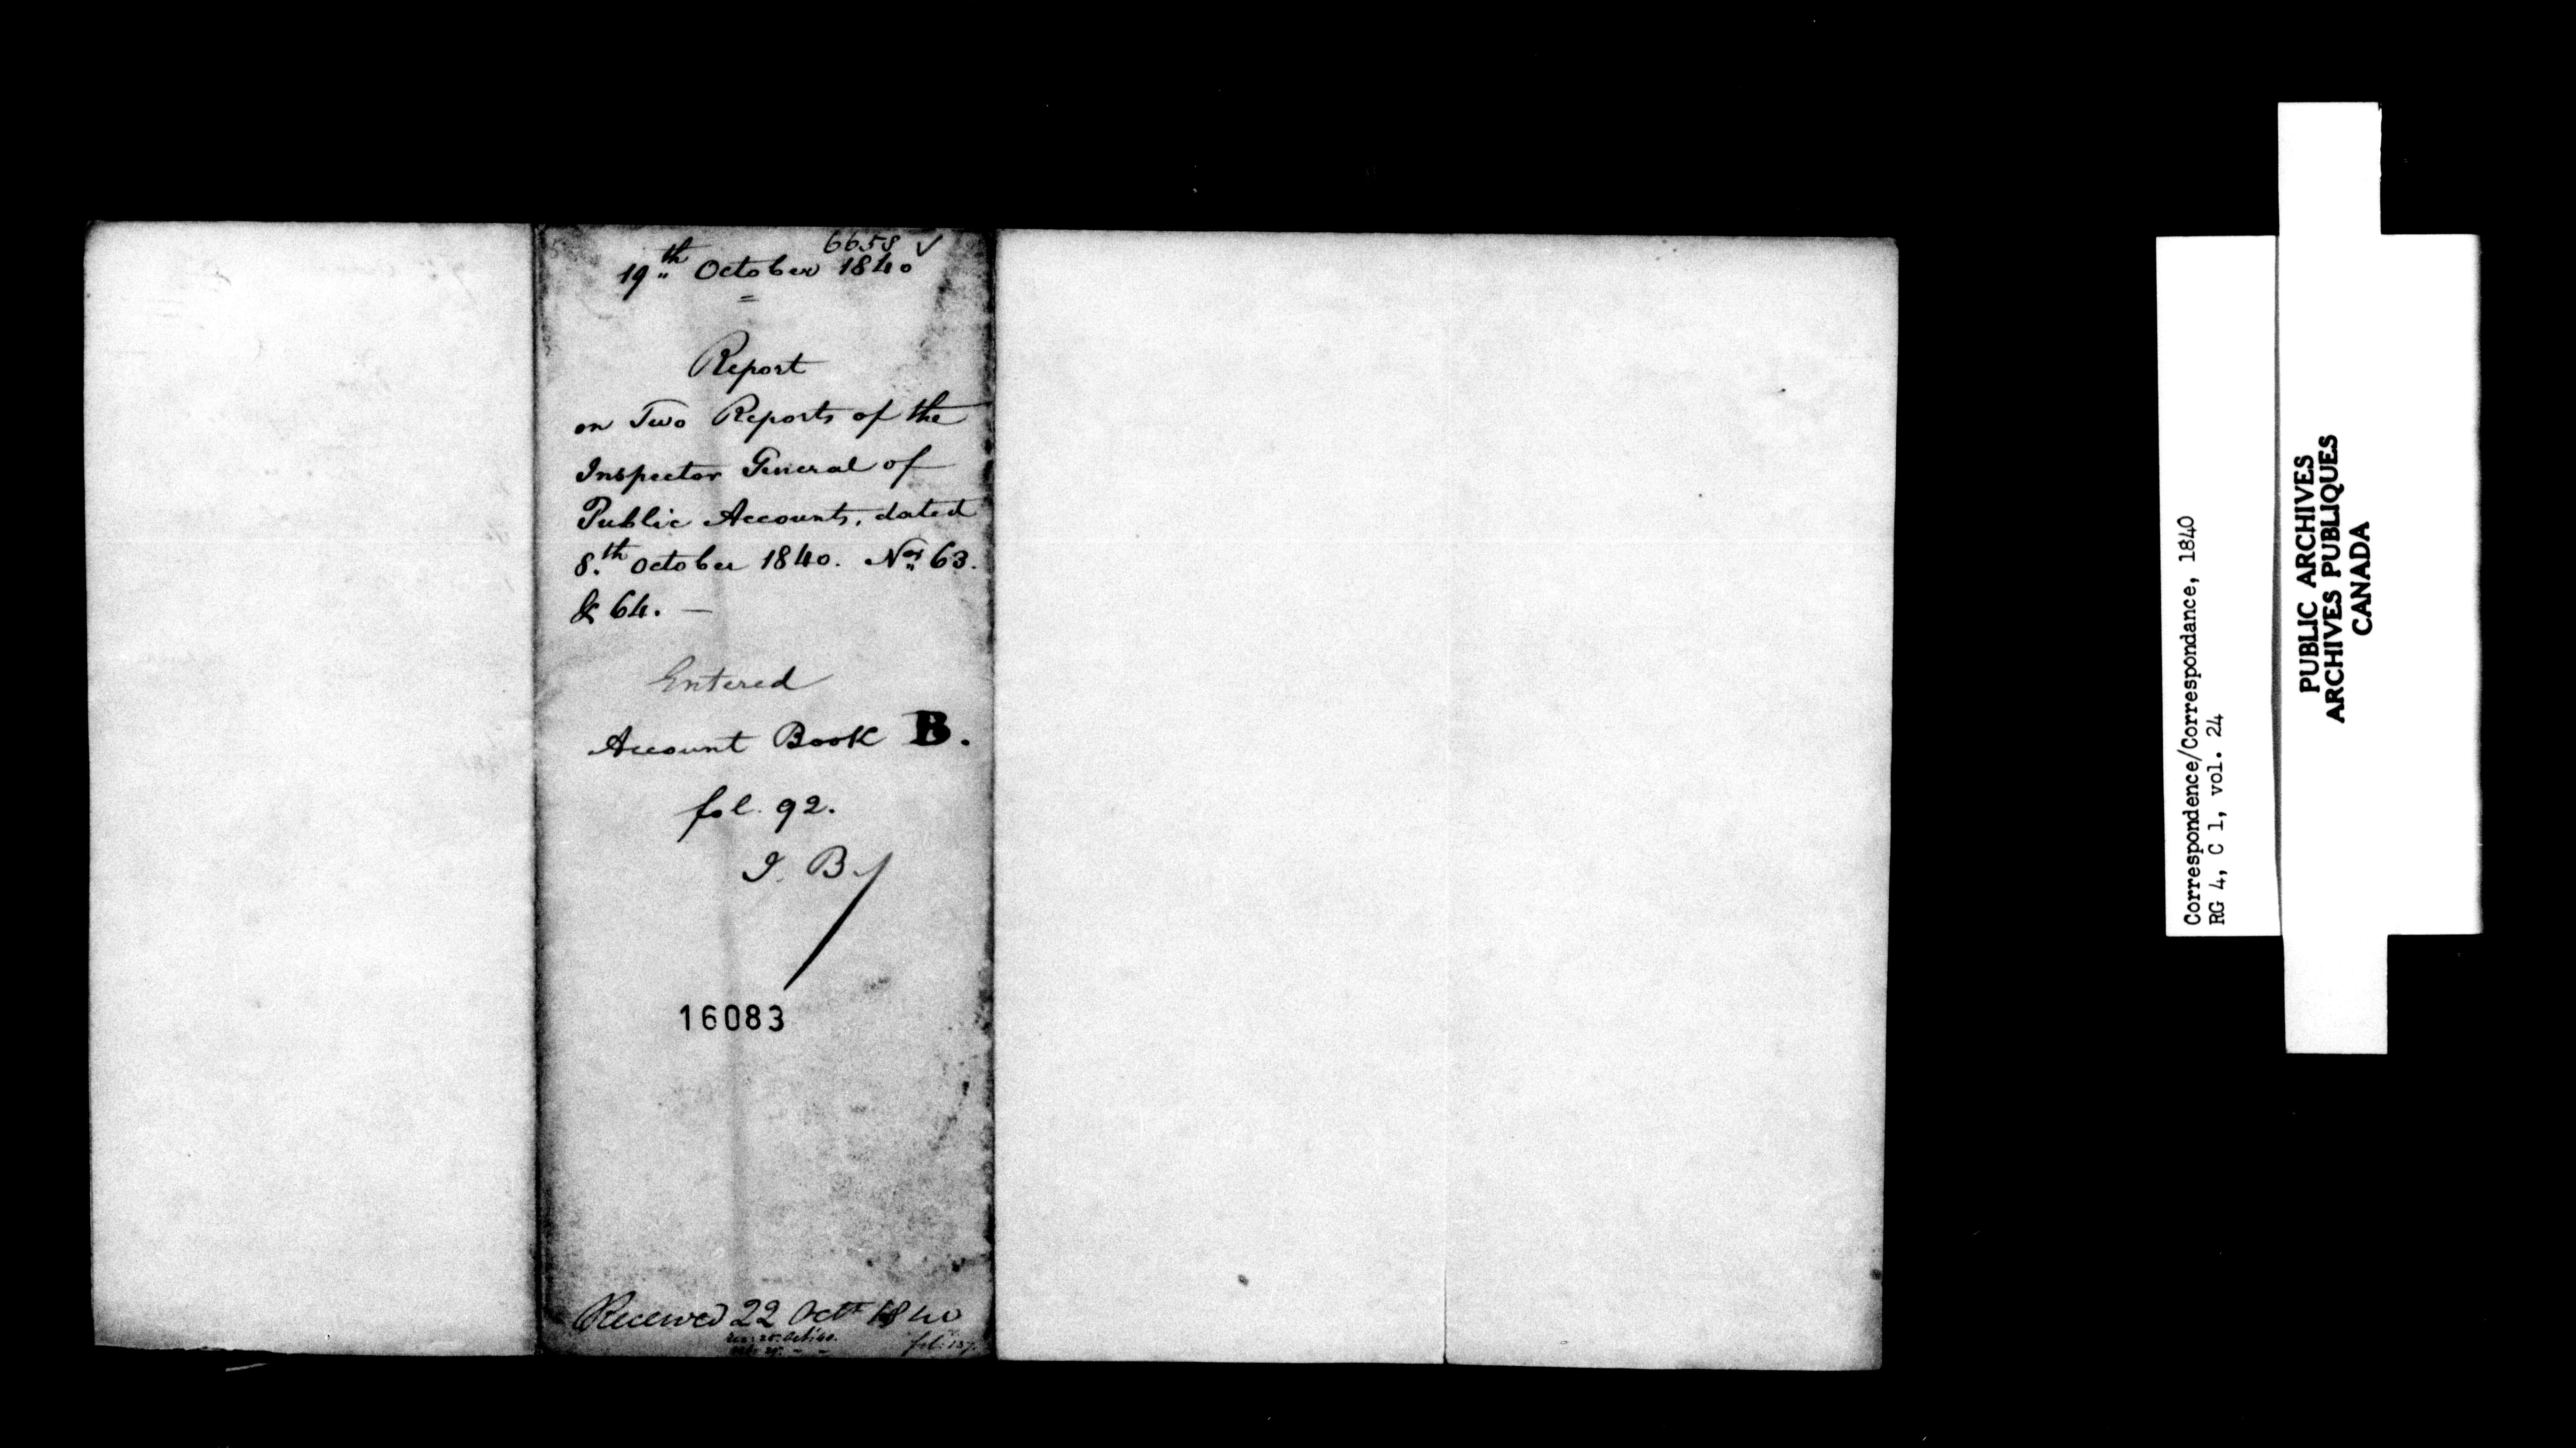 6658 ✓
19th October 1840
Report
on Two Reports of the
Inspector General of
Public Accounts, dated
8.th October 1840. Nos 63.
& 64. —
Entered
Account Book B.
fol. 92.
J. B.
16083
Received 22 Octr 1840
fol: 137.
Correspondence/Correspondance, 1840
RG 4, C 1, vol. 24
PUBLIC ARCHIVES
ARCHIVES PUBLIQUES
CANADA